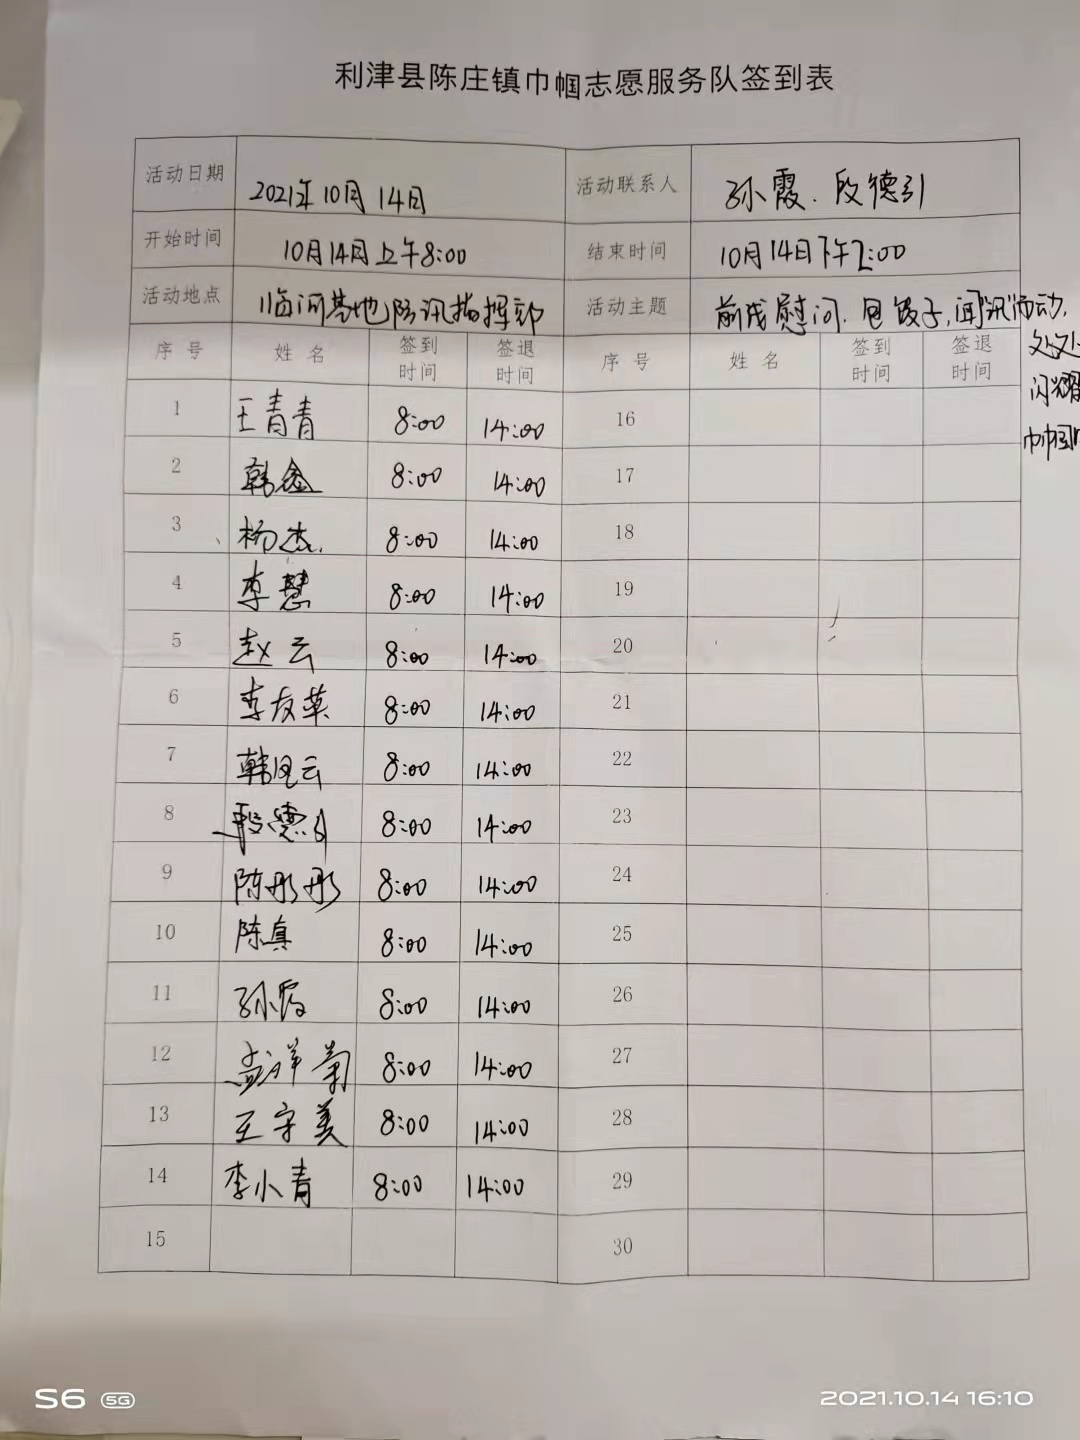 利津县陈庄镇巾帼志愿服务队签到表
活动日期 2021年10月14日 活动联系人 孙霞、段德引
开始时间 10月14日上午8:00 结束时间 10月14日下午2:00
活动地点 临河基地防汛指挥部 活动主题 前线慰问、包饺子,闻“汛”而动,
处处
闪耀
巾帼
序号 姓名 签到时间 签退时间 序号 姓名 签到时间 签退时间
1 王青青 8:00 14:00 16
2 韩鑫 8:00 14:00 17
3 杨杰 8:00 14:00 18
4 李慧 8:00 14:00 19
5 赵云 8:00 14:00 20
6 李友英 8:00 14:00 21
7 韩风云 8:00 14:00 22
8 段德引 8:00 14:00 23
9 陈彤彤 8:00 14:00 24
10 陈真 8:00 14:00 25
11 孙霞 8:00 14:00 26
12 孟祥菊 8:00 14:00 27
13 王守美 8:00 14:00 28
14 李小青 8:00 14:00 29
15 30
S6 5G 2021.10.14 16:10